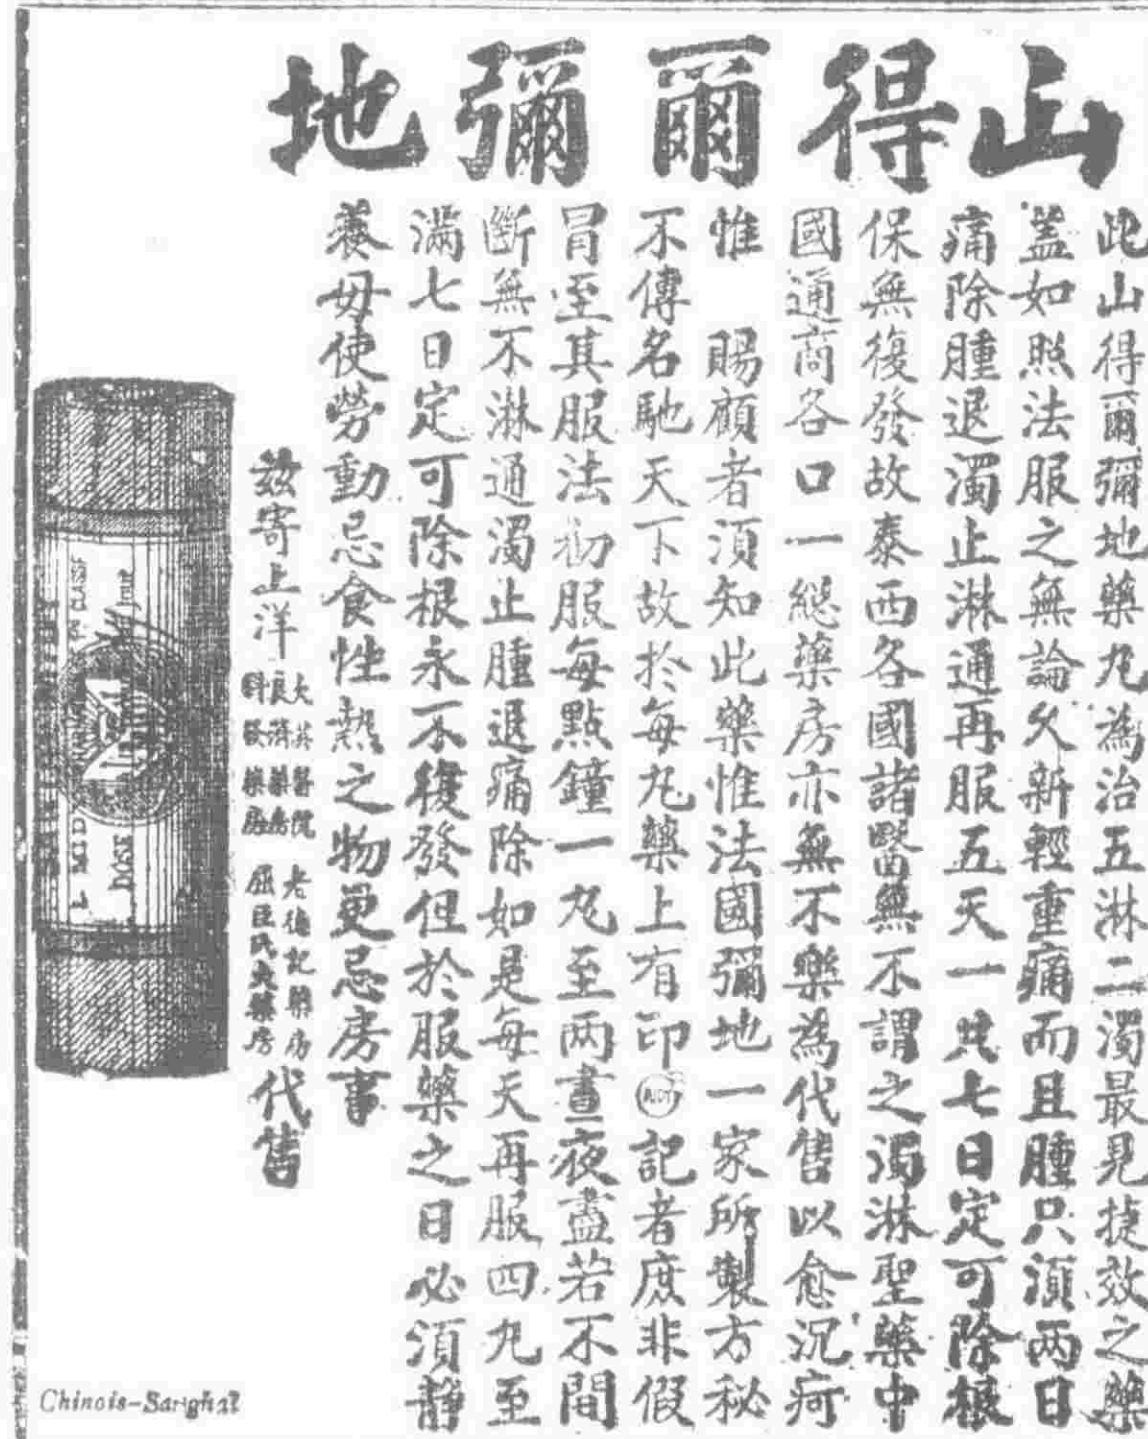 山得爾彌地
此山得爾彌地藥丸為治五淋二濁最見捷效之藥
蓋如照法服之無論久新輕重痛而且腫只須兩日
痛除腫退濁止淋通再服五天一共七日定可除根
保無復發故泰西各國諸醫無不謂之濁淋聖藥中
國通商各口一總藥房亦無不樂為代售以愈沉疴
惟 賜顧者須知此藥惟法國彌地一家所製方秘
不傳名馳天下故於每丸藥上有印MIDY記者庶非假
冒至其服法初服每點鐘一丸至兩晝夜盡若不間
斷無不淋通濁止腫退痛除如是每天再服四丸至
滿七日定可除根永不復發但於服藥之日必須静
養毋使勞動忌食性熱之物更忌房事
茲寄上洋
大英醫院
良濟藥房
科發藥房
老德記藥房
屈臣氏大藥房
代售
Chinois-Sanghaï